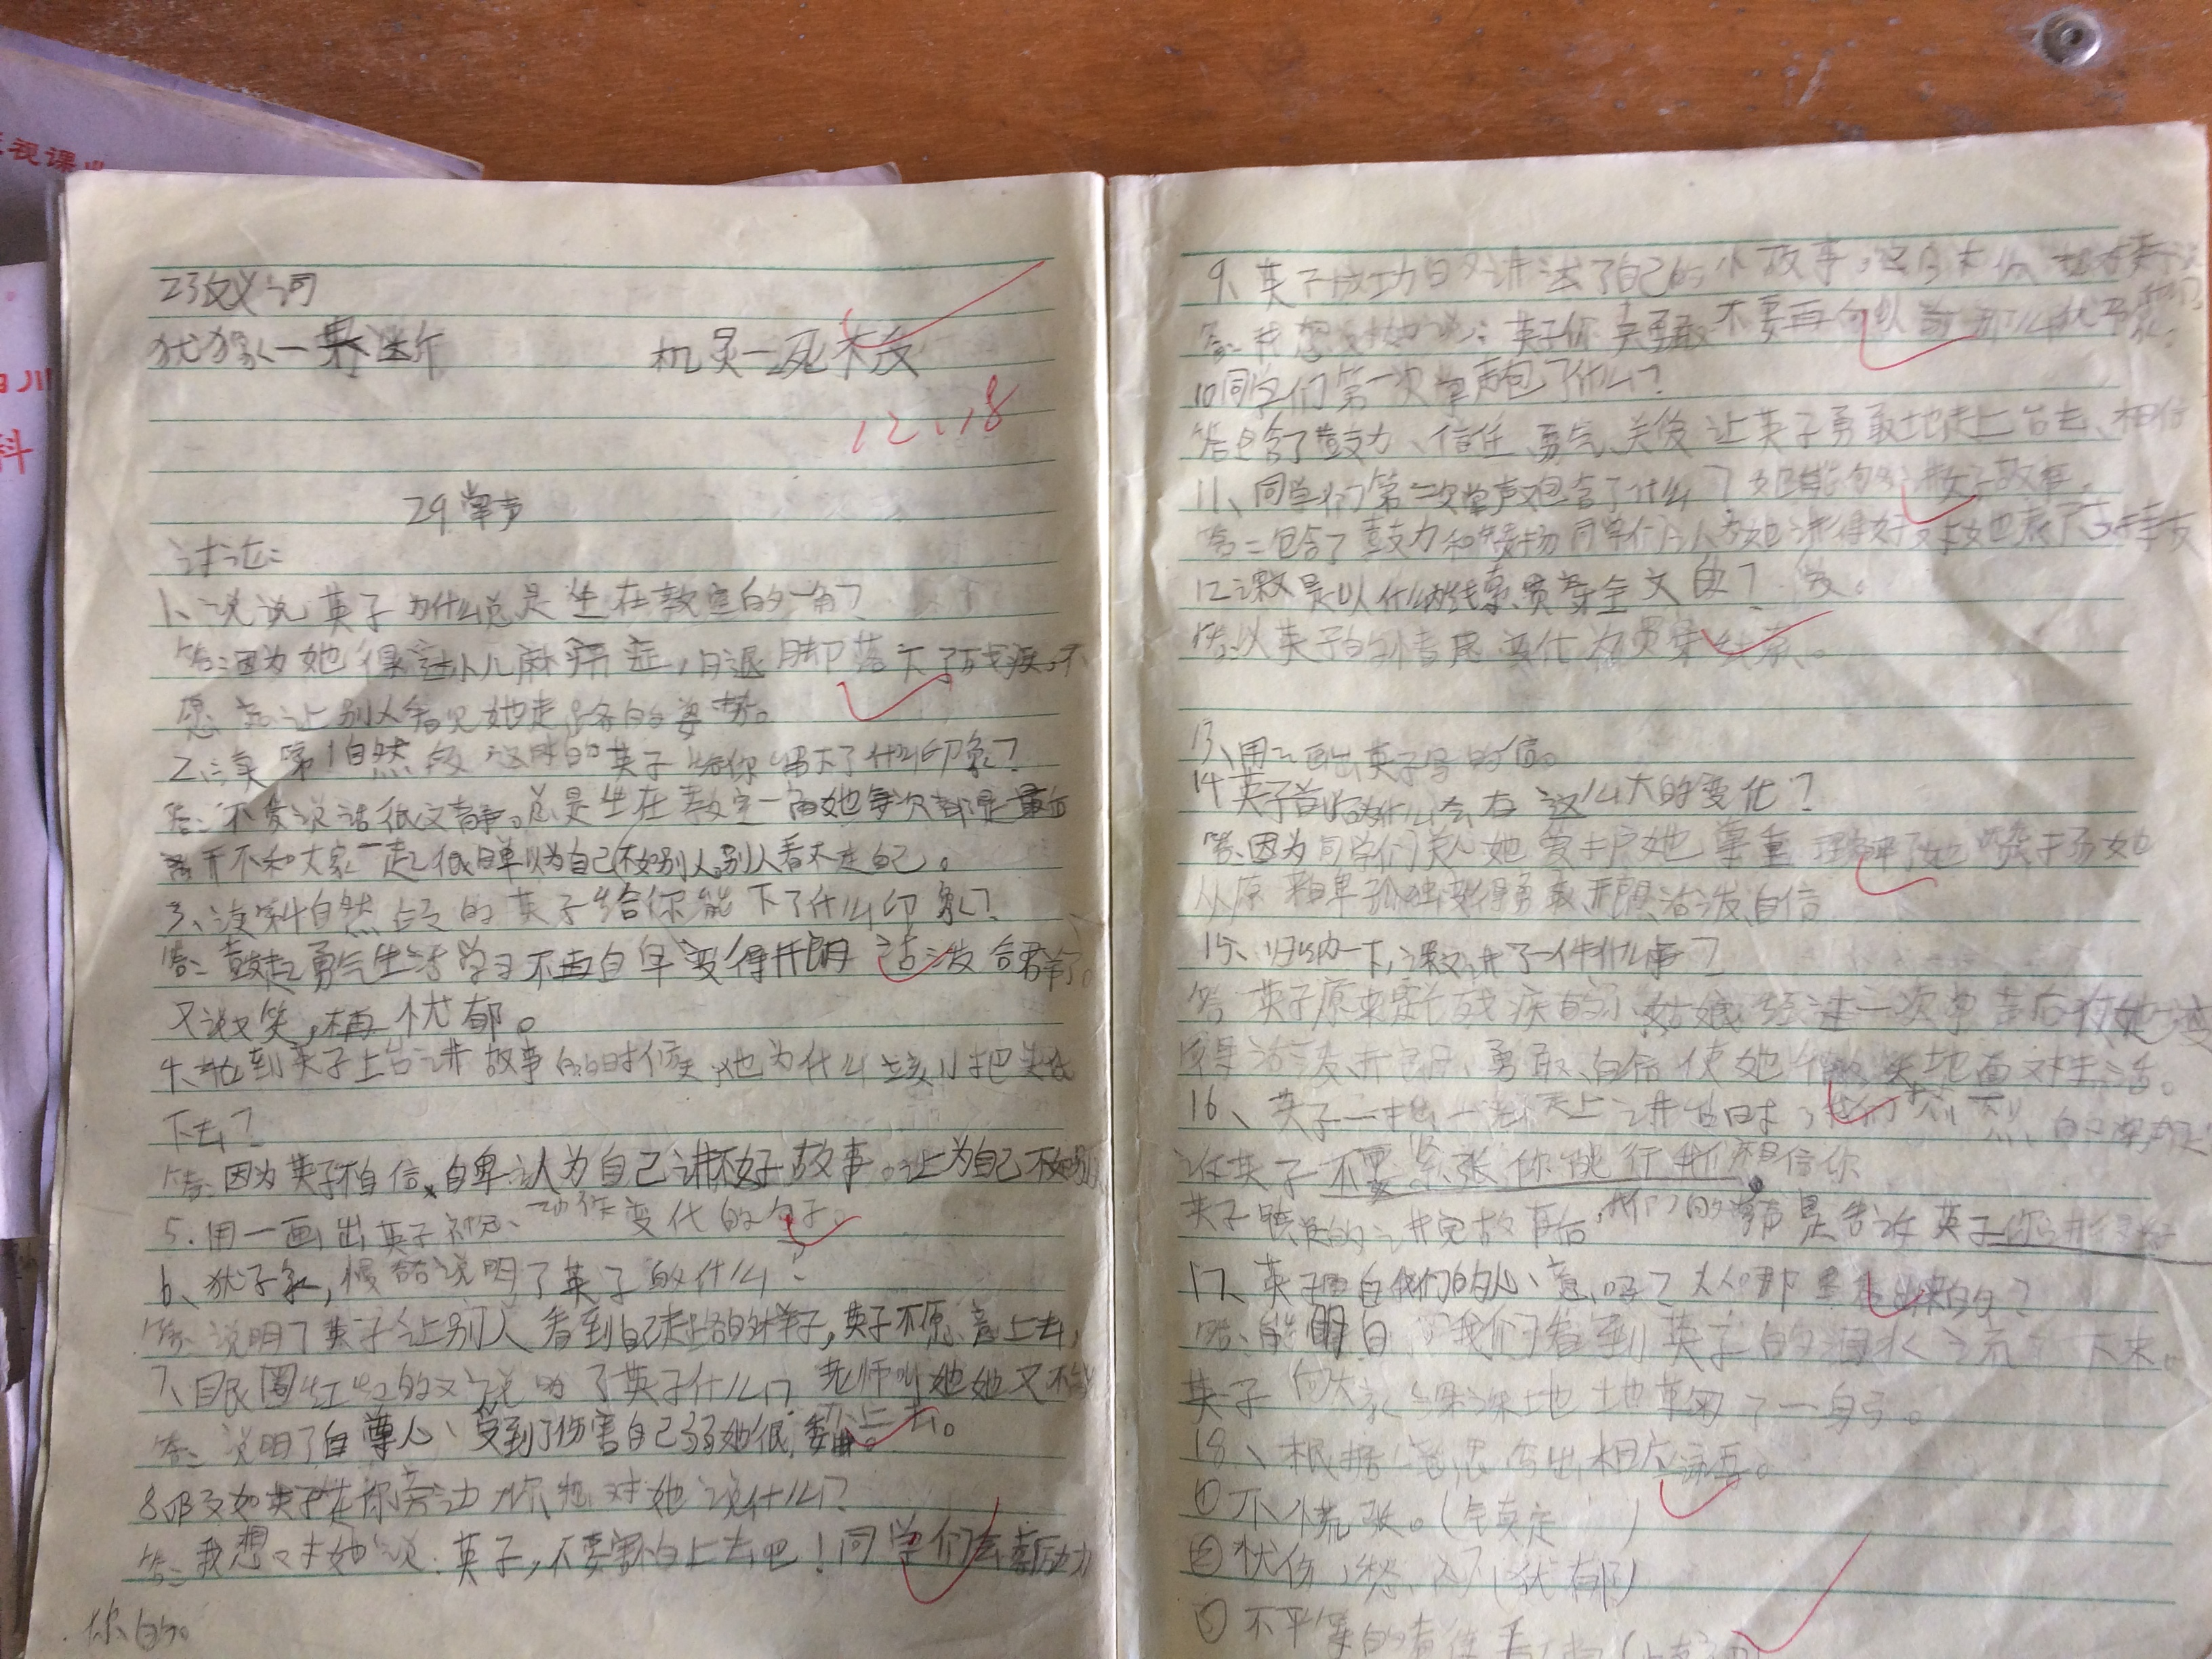 视课
科
反义词
犹豫—果断 机灵—死板
12.18
29掌声
讨论:
1、说说英子为什么总是坐在教室的一角?
答:因为她得过小儿麻痹症,腿脚落下了残疾,不
愿意让别人看见她走路的姿势。
2、读第1自然段 这时的英子给你留下了什么印象?
答:不爱说话很文静。总是坐在教室一角她每次都是最后
离开不和大家一起很自卑以为自己不如别人,别人看不起自己。
3、读第4自然段的英子给你能下了什么印象?
答:鼓起勇气生活学习不再自卑变得开朗 活泼合群了。
又说又笑,不再忧郁。
4、轮到英子上台讲故事的时候,她为什么 把头低
下去?
答:因为英子不自信,自卑认为自己讲不好故事。 为自己不如别
5.用一画出英子神态、动作变化的句子。
6、犹豫,慢吞吞说明了英子的什么?
答:说明了英子让别人看到自己走路的样子,英子不愿意上去,
7、眼圈红红的又说明了英子什么? 老师叫她她又不
答:说明了自尊心受到了伤害自己 她很委屈。 去。
8、假如英子在你旁边 你想对她说什么?
答:我想对她说:英子,不要害怕上去吧!同学们会鼓励
你的。
9、英子成功的讲述了自己的小故事,
答:我想对她说:英子你真勇敢 不要再向以前那么犹豫
10同学们第一次掌声包了什么?
答包含了鼓力、信任、勇气、关爱 让英子勇敢地走上台去、相信
11、同学们第二次掌声又包含了什么? 她能够讲好故事。
答:包含了鼓力和赞扬同学们认为她讲得好 她也表了
12课文是以什么为线索贯穿全文的?
答:以英子的情感变化为贯穿线索。
13、用 画出英子写的信。
14英子前后为什么会有这么大的变化?
答、因为同学们关心她爱护她尊重 理解了她 赞扬她
从原来自卑孤独变得勇敢 开朗 活泼 自信
15、归纳一下,课文讲了一件什么事?
答 英子原来是个残疾的小姑娘 经过一次掌声后 她变
得活泼、开朗、勇敢、自信使她微笑地面对生活。
16、英子一 上讲台时,我们热烈的掌声是
英子不要紧张你能行我们相信你。
英子 的讲完故事后,我们的掌声是告诉英子你讲得很好
17、英子明白我们的心意吗?从哪里看出来的?
答:能明白,我们看到英子的泪水流了下来。
英子向大家深深地地鞠了一躬。
18、根据意思写出相应词语。
①不慌张。(镇定 )
②忧伤,愁闷(忧郁)
③不平等的看待